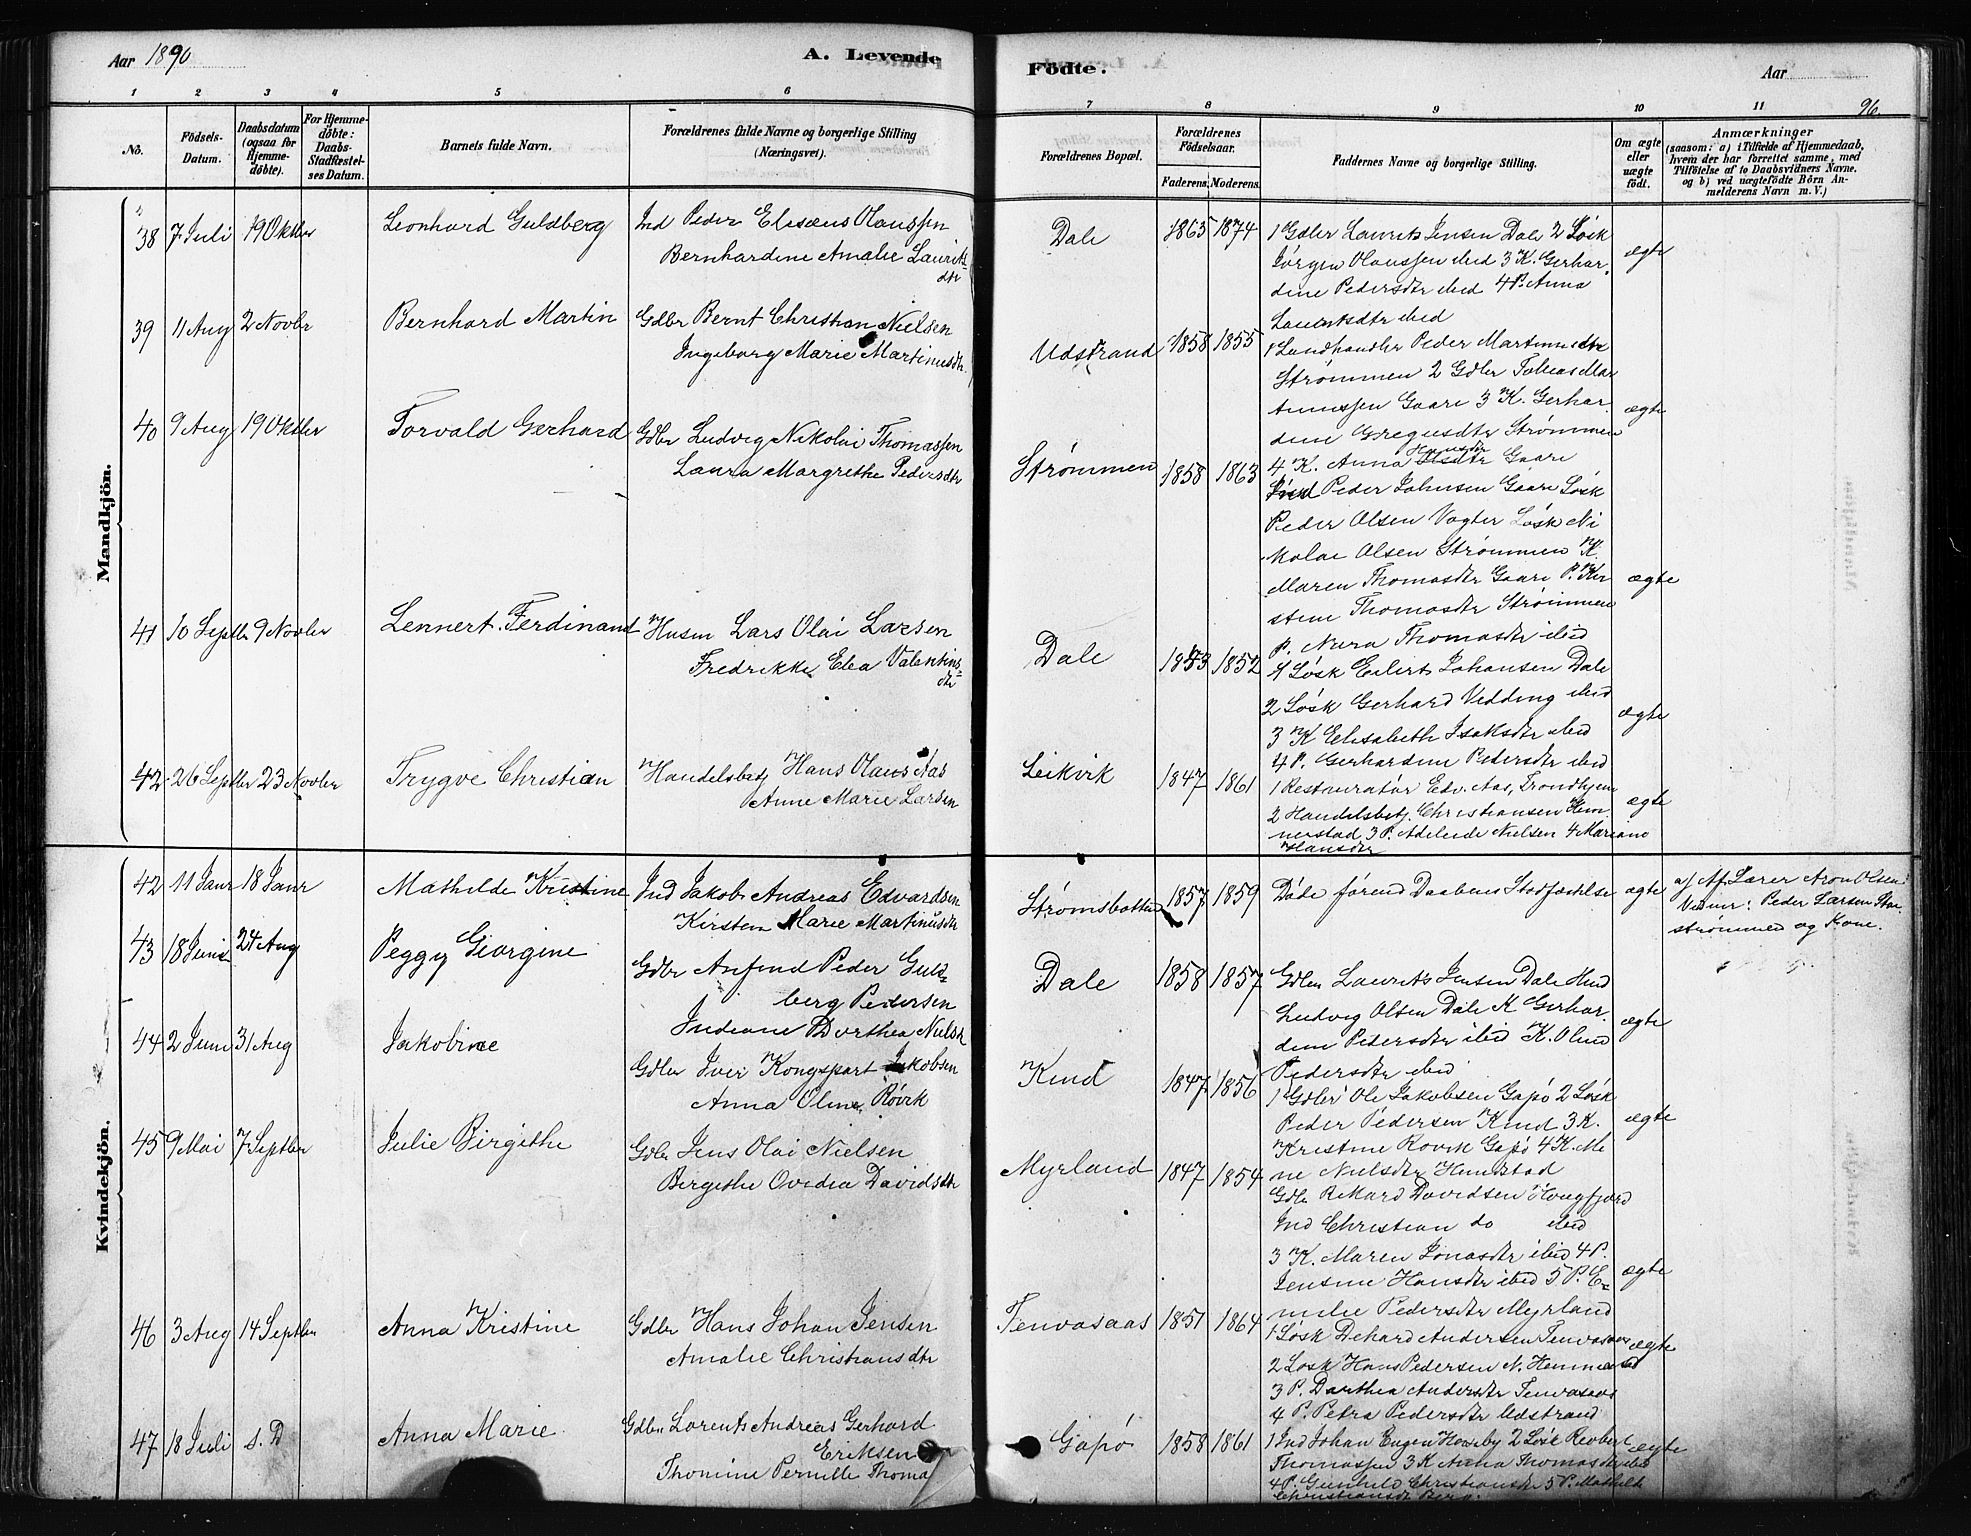 Aar 1890
A. Levende
Födte.
Aar
96.
1 2 3 4 5 6 7 8 9 10 11
No.
Födsels-
Datum.
Daabsdatum
(ogsaa for
Hjemme-
döbte).
For Hjemme-
döbte:
Daabs-
Stadfæstel-
ses Datum.
Barnets fulde Navn.
Forældrenes fulde Navne og borgerlige Stilling
(Næringsvei).
Forældrenes Bopæl.
Forældrenes
Födselsaar.
Faderens. Moderens.
Faddernes Navne og borgerlige Stilling.
Om ægte
eller
uægte
födt.
Anmærkninger
(saasom: a) i Tilfælde af Hjemmedaab,
hvem der har forrettet samme, med
Tilföielse af to Daabsvidners Navne,
og b) ved uægtefödte Börn An-
melderens Navn m. V.)
Mandkjön.
38 7 Juli 19 Oktbr Leonhard Guldberg Ind Peder Eliseus Olaussen
Bernhardine Amalie Laurits-
dtr
Dale 1863 1874 ægte
1 Gdbr Laurits Jensen Dale 2 Løsk
Jørgen Olaussen ibid 3 K. Gerhar-
dine Pedersdtr ibid 4 P. Anna
Lauritsdtr ibid
39 11 Aug 2 Novbr Bernhard Martin Gdbr Bernt Christian Nielsen
Ingeborg Marie Martinusdtr
Udstrand 1858 1855 ægte
1 Landhandler Peder
Strømmen 2 Gdbr Tobias Mar
Gaare 3 K. Gerhar
dine Strømmen
4 K. Anna Gaare
40 9 Aug 19 Oktbr Torvald Gerhard Gdbr Ludvig Nikolai Thomassen
Laura Margrethe Pedersdtr
Strømmen 1858 1863 ægte
Peder Johnsen Gaare Løsk
Peder Olsen Vogter Løsk Ni
kolai Olsen Strømmen K.
Maren Thomasdtr Gaare P. Kir
stine Thomasdtr Strømmen
P. Thomasdtr ibid
41 10 Septbr 9 Novbr Lennert Ferdinand Husm Lars Olai Larsen
Fredrikke Elea Valentins-
dtr
Dale 1853 1852 ægte
1 Løsk Eilert Johansen Dale
2 Løsk Gerhard Vedding ibid
3 K Elisabeth Isaksdtr ibid
4 P. Gerhardine Pedersdtr ibid
42 26 Septbr 23 Novbr Trygve Christian Handelsbetj Hans Olaus Aas
Anne Marie Larsen
Leikvik 1847 1861 ægte
1 Restauratør Edv. Aas, Trondhjem
2 Handelsbetj. Christiansen Hem
nestad 3 P. Adeleide Nielsen 4 Mariane
Hansdtr
Kvindekjön.
42 11 Janr 18 Janr Mathilde Kristine Ind Jakob Andreas Edvardsen
Kirsten Marie Martinusdtr
Strømsbotten 1857 1859 Døde førend Daabens Stadfæstelse ægte
a) Af Lærer Aron Olsen
Vidner: Peder Larsen
og Kone.
43 18 Juni 24 Aug Peggy Georgine Gdbr Anfind Peder Guld-
berg Pedersen
Indiane Dorthea Nielsdr
Dale 1858 1857 ægte
Gdbr Laurits Jensen Dale Ind
Ludvig Olsen Dale K Gerhar
dine Pedersdtr ibid K. Oline
Pedersdtr ibid
44 2 Juni 31 Aug Jakobine Gdbr Iver Kongspart Jakobsen
Anna Oline Røvik
Kind 1847 1856 ægte
1 Gdbr Ole Jakobsen Gapø 2 Løsk
Peder Pedersen Kind 3 K.
Kristine Røvik Gapø 4 K. Me
ne Nielsdtr Hemstad
45 9 Mai 7 Septbr Julie Birgithe Gdbr Jens Olai Nielsen
Birgithe Ovedia Davidsdtr
Myrland 1847 1854 ægte
Gdbr Rikard Davidsen
Ind Christian do ibid
3 K. Maren Jonasdtr ibid 4 P.
Jensine Hansdtr ibid 5 P. E-
milie Pedersdtr Myrland
46 3 Aug 14 Septbr Anna Kristine Gdbr Hans Johan Jensen
Amalie Christiansdtr
Tenvasaas 1851 1864 ægte
1 Løsk Andersen Tenvasaas
2 Løsk Hans Pedersen N. Hemmestad
3 P. Dorthea Andersdtr Tenvasaas
4 P. Petra Pedersdtr Udstrand
47 18 Juli s. D Anna Marie Gdbr Lorents Andreas Gerhard
Eriksen
Thomine Pernille Thoma
Gapø 1858 1861 ægte
1 Ind Johan Eugen 2 Løsk
Thomassen 3 K Anna Thomasdtr ibid
4 P. Gunhild Christiansdtr 5 P. Mathilde
Christiansdtr